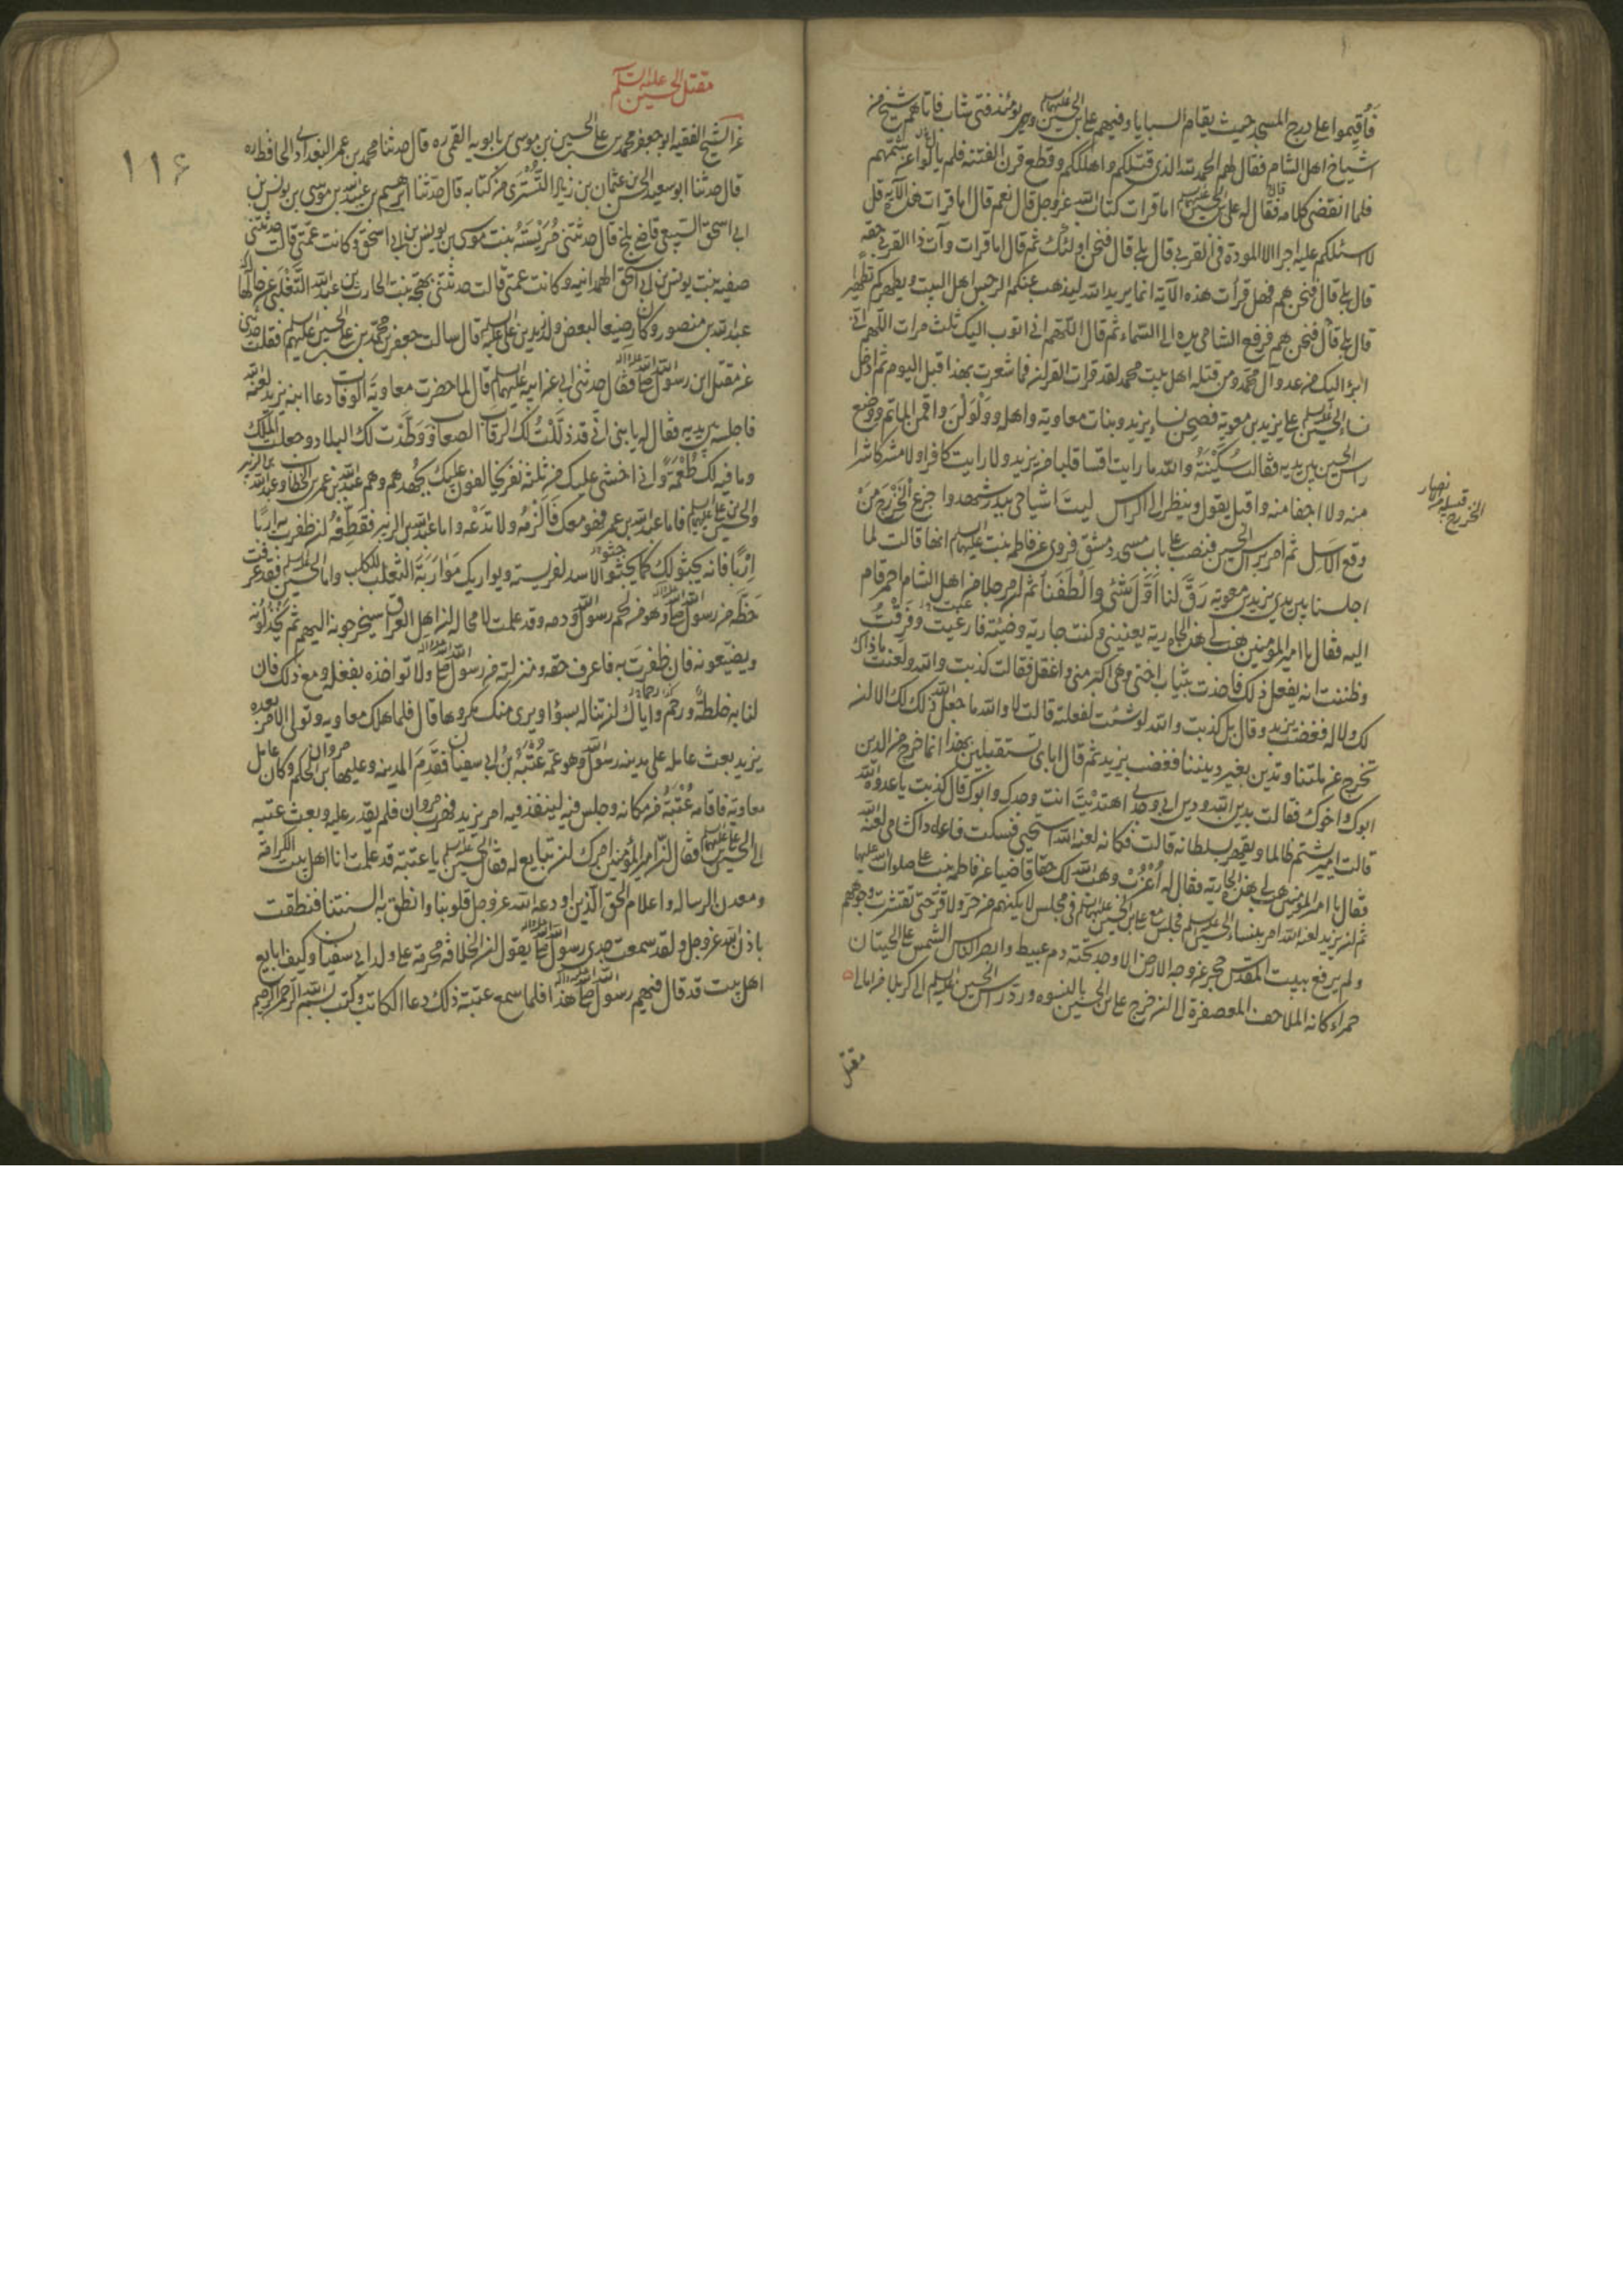 فاقيموا على درج المسجد حيث يقام السبايا وفيهم علي بن الحسين عليهما السلم وهو يومئذ فتى شاب فاتاهم شيخ من
اشياخ اهل الشام فقال لهم الحمد لله الذي قتلكم واهلككم وقطع قرن الفتنة فلم يال عن شتمهم
فلما انقضى كلامه فقال له علي بن الحسين عليهما السلم اما قرات كتاب الله عز وجل قال نعم قال اما قرات هذه الآية قل
لا اسئلكم عليه اجرا الا المودة في القربى قال بلى قال فنحن اولئك ثم قال اما قرات وآت ذا القربى حقه
قال بلى قال فنحن هم فهل قرأت هذه الآية انما يريد الله ليذهب عنكم الرجس اهل البيت ويطهركم تطهيرا
قال بلى قال فنحن هم فرفع الشامي يده الى السماء ثم قال اللهم اني اتوب اليك ثلث مرات اللهم اني
ابرا اليك من عدو آل محمد ومن قتلة اهل بيت محمد لقد قرات القران فما شعرت بهذا قبل اليوم ثم ادخل
نساء الحسين عليه السلم على يزيد بن معوية فصحن نساء يزيد وبنات معاوية واهله وولولن واقمن الماتم ووضع
راس الحسين بين يديه فقالت سكينة والله ما رايت اقسا قلبا من يزيد ولا رايت كافرا ولا مشركا شرا
منه ولا اجفا منه واقبل يقول وينظر الى الراس ليت اشياخي ببدر شهدوا جزع الخزرج من
وقع الاسل ثم امر براس الحسين فنصب على باب مسجد دمشق فروي عن فاطمة بنت علي عليهما السلم انها قالت لما
اجلسنا بين يدي يزيد بن معوية رق لنا اول شئ والطفنا ثم ان رجلا من اهل الشام احمر قام
اليه فقال يا امير المؤمنين هب لي هذه الجارية يعنيني وكنت جارية وضيئة فارعبت وفرقت
وظننت انه يفعل ذلك فاخذت بثياب اختي وهي اكبر مني واعقل فقالت كذبت والله ولعنت ما ذاك
لك ولا له فغضب يزيد وقال بل كذبت والله لو شئت لفعلته قالت لا والله ما جعل الله ذلك لك الا ان
تخرج عن ملتنا وتدين بغير ديننا فغضب يزيد ثم قال اياي تستقبلين بهذا انما خرج من الدين
ابوك واخوك فقالت بدين الله ودين ابي وجدي اهتديت انت وجدك وابوك قال كذبت يا عدوة الله
قالت امير يشتم ظالما ويقهر بسلطانه قالت فكانه لعنه الله استحيى فسكت فاعاد الشامي لعنه الله
فقال يا امير المؤمنين هب لي هذه الجارية فقال له اعزب وهب الله لك حتفا قاضيا عن فاطمة بنت علي صلوات الله عليها
ثم ان يزيد لعنه الله امر بنساء الحسين عليه السلم فحبس مع علي بن الحسين عليهما السلم في مجلس لا يكنهم من حر ولا قر حتى تقشرت وجوههم
ولم يرفع ببيت المقدس حجر عن وجه الارض الا وجد تحته دم عبيط وابصر الناس الشمس على الحيتان
حمراء كانه الملاحف المعصفرة الى ان خرج علي بن الحسين بالنسوة ورد راس الحسين عليه السلم الى كربلا
الخزرج قبيلة من الانصار
مقتل
مقتل الحسين عليه السلم
١١۶
عن الشيخ الفقيه ابو جعفر محمد بن علي بن الحسين بن موسى بن بابويه القمي ره قال حدثنا محمد بن عمر البغدادي الحافظ ره
قال حدثنا ابو سعيد الحسن بن عثمان بن زياد التستري من كتابه قال حدثنا ابرهيم بن عبيد الله بن موسى بن يونس بن
ابي اسحق السبيعي قاضي بلخ قال حدثتني مريسة بنت موسى بن يونس بن ابي اسحق وكانت عمتي قالت حدثتني
صفية بنت يونس بن ابي اسحق الهمدانية وكانت عمتي قالت حدثتني بهجة بنت الحارث بن عبد الله التغلبي عن خالها
عبد الله بن منصور وكان رضيعا لبعض ولد زيد بن علي عليه السلم قال سالت جعفر بن محمد بن علي بن الحسين عليهم السلم فقلت حدثني
عن مقتل ابن رسول الله صلى الله عليه واله فقال حدثني ابي عن ابيه عليهما السلم قال لما حضرت معاوية الوفات دعا ابنه يزيد لعنه الله
فاجلسه بين يديه فقال له يا بني اني قد ذللت لك الرقاب الصعاب ووطدت لك البلاد وجعلت الملك
وما فيه لك طعمة واني اخشى عليك من ثلثة نفر يخالفون عليك بجهدهم وهم عبد الله بن عمر بن الخطاب وعبد الله بن الزبير
والحسين بن علي عليهما السلم فاما عبد الله بن عمر فهو معك فالزمه ولا تدعه واما عبد الله بن الزبير فقطعه ان ظفرت به اربا
اربا فانه يجثو لك كما يجثو الاسد لفريسته ويواربك مواربة الثعلب للكلب واما الحسين عليه السلم فقد عرفت
حظه من رسول الله صلى الله عليه واله وهو من لحم رسول الله ودمه وقد علمت لا محالة ان اهل العراق سيخرجونه اليهم ثم يخذلونه
ويضيعونه فان ظفرت به فاعرف حقه ومنزلته من رسول الله صلى الله عليه واله ولا تواخذه بفعله ومع ذلك فان
لنا به خلطة ورحم واياك ان تناله بسؤ او يرى منك مكروها قال فلما هلك معاوية وتولى الامر بعده
يزيد بعث عامله على مدينة رسول الله وهو عمه عتبة بن ابي سفيان فقدم المدينة وعليها مروان بن الحكم وكان عامل
معاوية فاقامه عتبة من مكانه وجلس فيه لينفذ فيه امر يزيد فهرب مروان فلم يقدر عليه وبعث عتبة
الى الحسين بن علي عليهما السلم فقال ان امير المؤمنين امرك ان تبايع له فقال الحسين عليه السلم يا عتبة قد علمت انا اهل بيت الكرامة
ومعدن الرسالة واعلام الحق الذين اودعه الله عز وجل قلوبنا وانطق به السنتنا فنطقت
باذن الله عز وجل ولقد سمعت جدي رسول الله صلى الله عليه واله يقول ان الخلافة محرمة على ولد ابي سفيان وكيف ابايع
اهل بيت قد قال فيهم رسول الله صلى الله عليه واله هذا فلما سمع عتبة ذلك دعا الكاتب وكتب بسم الله الرحمن الرحيم